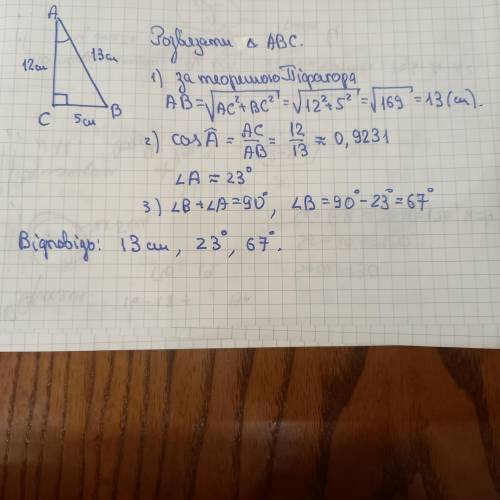 A
12см
13см
C
5см
B
Розв'язати △ ABC.
1) за теоремою Піфагора
AB = √AC²+BC² = √12²+5² = √169 = 13 (см).
2) cos Â = AC/AB = 12/13 ≈ 0,9231
∠A ≈ 23°
3) ∠B+∠A = 90°, ∠B = 90° - 23° = 67°
Відповідь: 13 см, 23°, 67°.